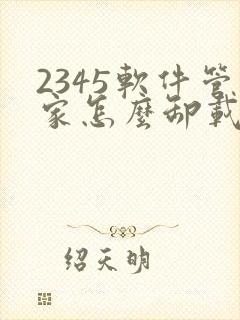 2345軟件管
家怎麽卸載
绍天明